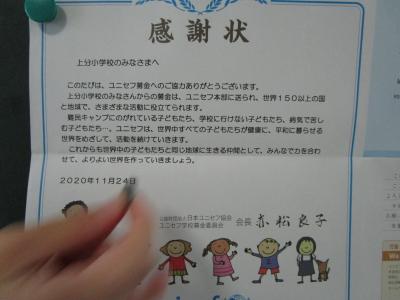 感謝状
上分小学校のみなさまへ
このたびは、ユニセフ募金へのご協力ありがとうございます。
上分小学校のみなさんからの募金は、ユニセフ本部に送られ、世界150以上の国
と地域で、さまざまな活動に役立てられます。
難民キャンプにのがれている子どもたち、学校に行けない子どもたち、病気で苦し
む子どもたち…。ユニセフは、世界中すべての子どもたちが健康に、平和に暮らせる
世界をめざして、活動を続けていきます。
これからも世界中の子どもたちと同じ地球に生きる仲間として、みんなで力を合わ
せて、よりよい世界を作っていきましょう。
2020年11月24日
公益財団法人日本ユニセフ協会
ユニセフ学校募金委員会
会長 赤松良子